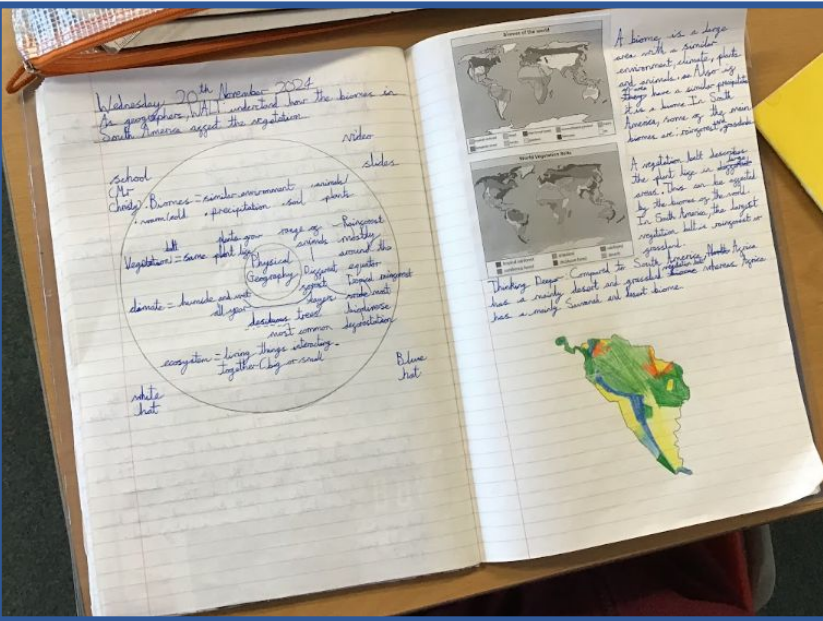 Wednesday 20th November 2024
As geographers, WALT understand how the biomes in
South America affect the vegetation
video
slides
school
Mr
Christy
Biomes = similar environment animals/
• warm/cold • precipitation • soil plants
belt
Vegetation = same plant life
plants grow
range of
animals
Rainforest
mostly
around the
equator
Physical
Geography
Different
forest
layers
climate = humide and wet
all year
Tropical rainforest
most
biodiverse
desiduous trees
most common
deforestation
ecosystem = living things interacting
together (big or small
white
hat
Blue
hat
Biomes of the world
World Vegetation Belts
A biome is a large
area with a similar
environment, climate, plants
and animals. Also if
they have a similar precipitation
it is a biome. In South
America, some of the main
biomes are: rainforest and grassland.
A vegetation belt describes
the plant life in large
areas. This can be affected
by the biomes of the world.
In South America, the largest
vegetation belt is rainforest or
grassland.
Thinking Deeper: Compared to South America, North Africa
has a mainly desert and grassland vegetation belt whereas Africa
has a mainly Savanah and desert biome.